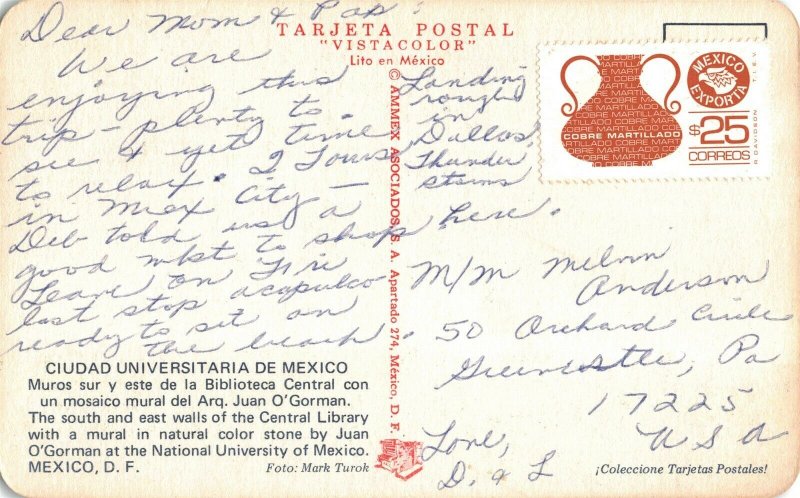 Dear Mom & Pap!
We are
enjoying this
trip - plenty to
see & yet time
to relax. 2 Tours
in Mex City -
Deb told us a
good mkt to shop here.
Leave on Fri
last stop acapulco
ready to sit on
the beach.
Landing
rough
in
Dallas,
Thunder
storms
TARJETA POSTAL
"VISTACOLOR"
Lito en México
© AMMEX ASOCIADOS, S. A. Apartado 274, México, D. F.
COBRE MARTILLADO
MEXICO
EXPORTA
$25
CORREOS
T.I.E.V.
R DAVIDSON
M/M Melvin
Anderson
50 Orchard Circle
Greencastle, Pa
17225
USA
Love,
D. & L
CIUDAD UNIVERSITARIA DE MEXICO
Muros sur y este de la Biblioteca Central con
un mosaico mural del Arq. Juan O'Gorman.
The south and east walls of the Central Library
with a mural in natural color stone by Juan
O'Gorman at the National University of Mexico.
MEXICO, D. F. Foto: Mark Turok
¡Coleccione Tarjetas Postales!